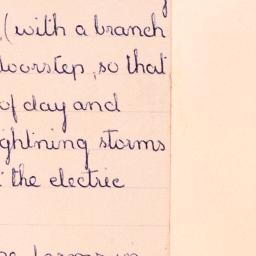 (with a branch
doorstep, so that
of day and
lightning storms
the electric